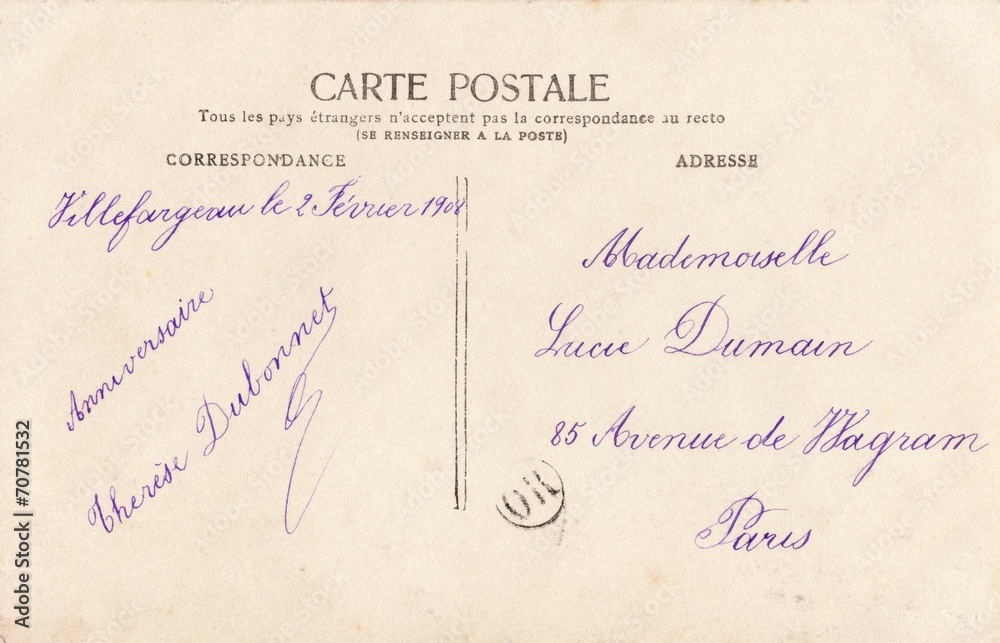 CARTE POSTALE
Tous les pays étrangers n'acceptent pas la correspondance au recto
(SE RENSEIGNER A LA POSTE)
CORRESPONDANCE
Villefargeau le 2 Février 1908
Anniversaire
Thérèse Dubonnet
ADRESSE
Mademoiselle
Lucie Dumain
85 Avenue de Wagram
Paris
OR
Adobe Stock | #70781532